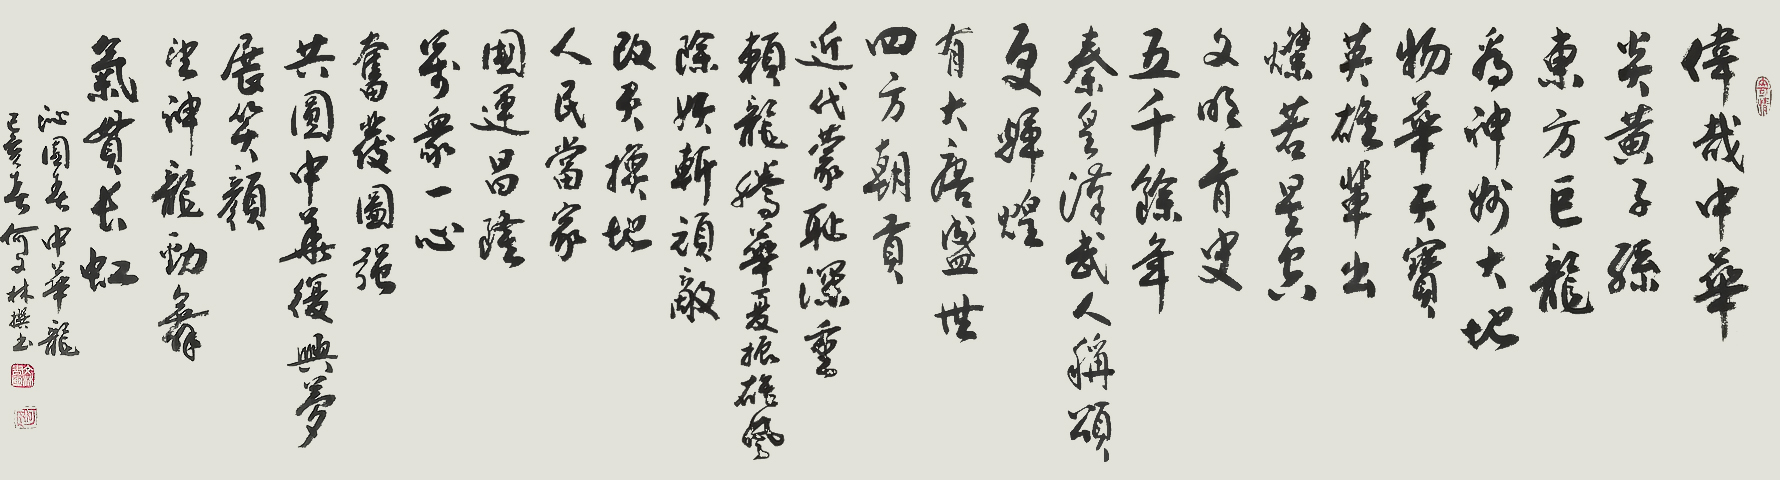 偉哉中華
炎黃子孫
東方巨龍
為神州大地
物華天寶
英雄輩出
燦若星空
文明青史
五千餘年
秦皇漢武人稱頌
更輝煌
有大唐盛世
四方朝貢
近代蒙恥深重
賴龍騰華夏振雄風
除妖斬頑敵
改天換地
人民當家
國運昌隆
萬眾一心
奮發圖強
共圓中華復興夢
展笑顏
望神龍勁舞
氣貫長虹
沁園春 中華龍
己亥春 何文林撰書